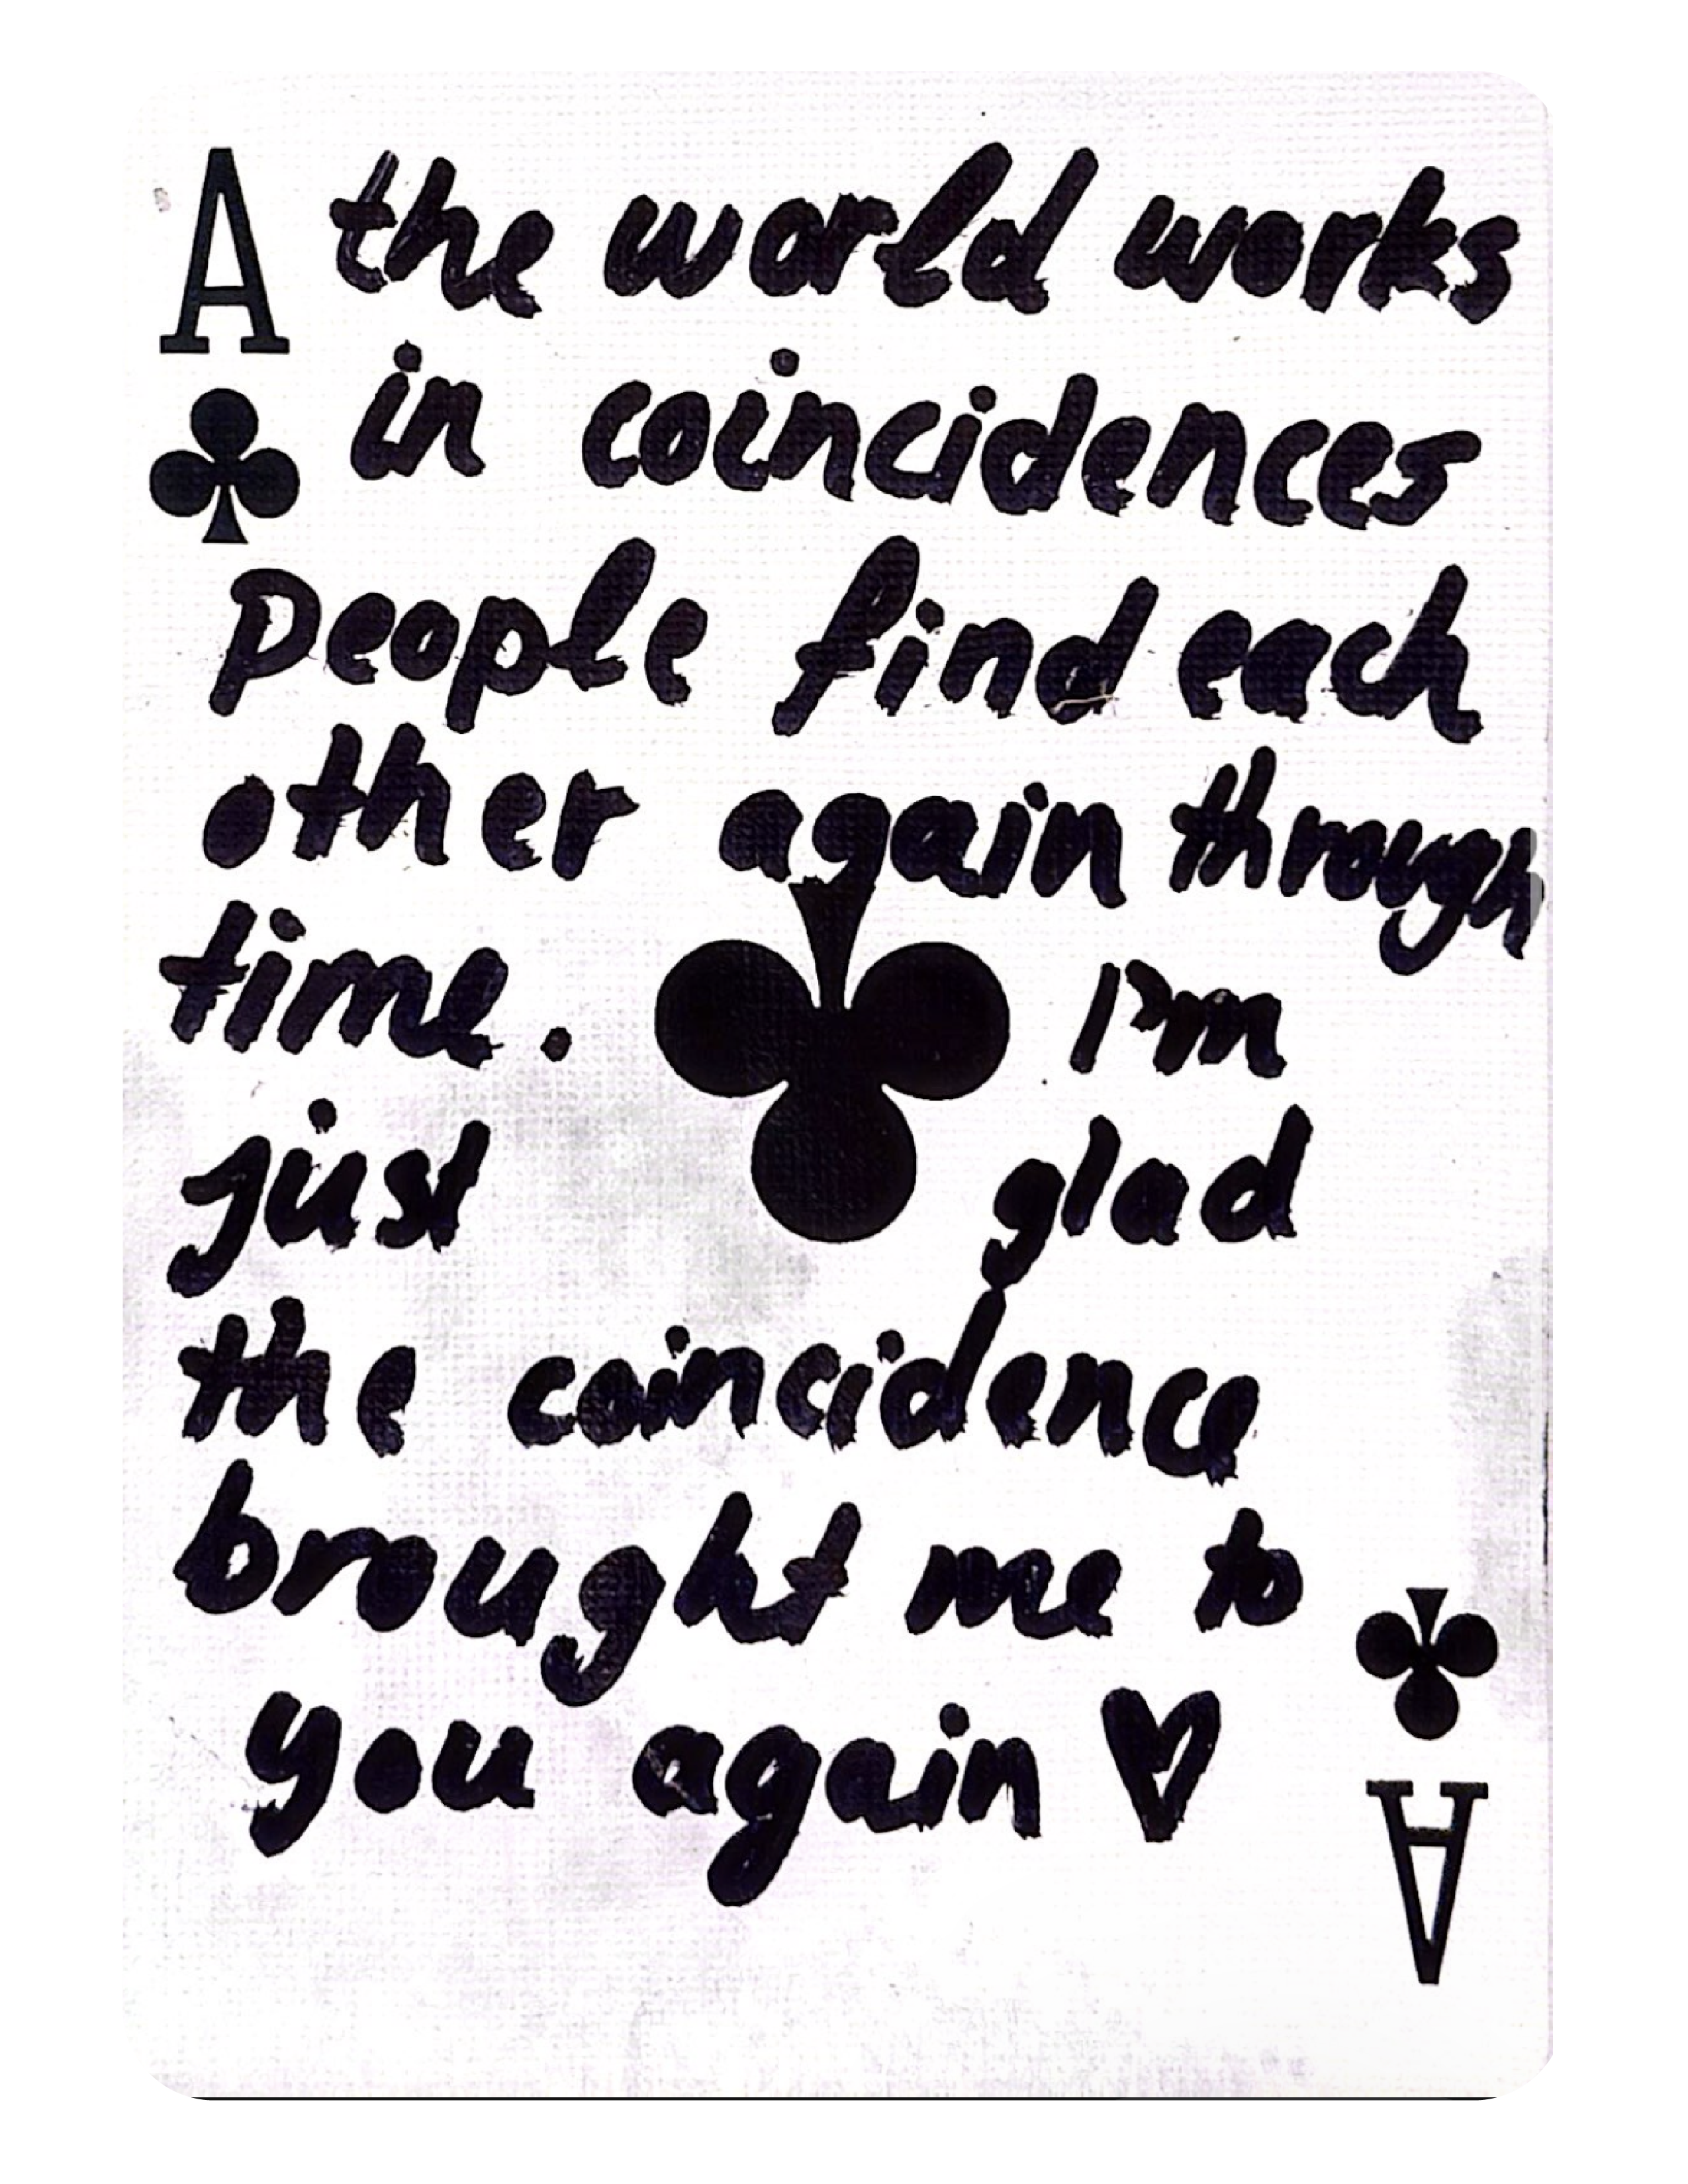 A the world works
in coincidences
people find each
other again through
time. I'm
just glad
the coincidence
brought me to
you again ♡
A